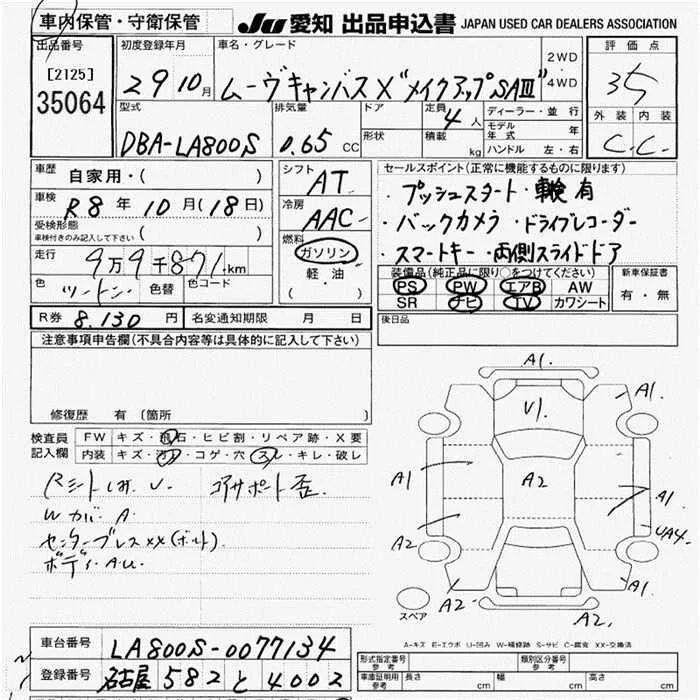 車内保管・守衛保管
JU 愛知 出品申込書 JAPAN USED CAR DEALERS ASSOCIATION
出品番号
[2125]
35064
初度登録年月
29 10月
車名・グレード
ムーヴキャンバス X "メイクアップSAIII"
2WD
4WD
評価点
3.5
外装 内装
C. C.
型式
DBA-LA800S
排気量
0.65 CC
ドア
形状
定員
4人
積載
kg
ディーラー・並行
モデル年式 年
ハンドル 左・右
車歴
自家用・( )
車検
R8年10月(18日)
受検形態
車検付きのみ記入して下さい ( )
走行
9万9千871km
色
ツートン
色替
色コード
シフト
AT
冷房
AAC
燃料
ガソリン
軽油
( ・ )
セールスポイント(正常に機能するものに限ります)
・プッシュスタート・車検有
・バックカメラ・ドライブレコーダー
・スマートキー・両側スライドドア
装備品(純正品に限り○をつけてください)
PS PW エアB AW
SR ナビ TV カワシート
新車保証書
有・無
R券 8.130円
名変通知期限 月 日
後日品
注意事項申告欄(不具合内容等は具体的に記入して下さい)
修復歴 有 (箇所 )
検査員
記入欄
FW キズ・飛石・ヒビ割・リペア跡・X要
内装 キズ・汚れ・コゲ・穴・スレ・キレ・破レ
コアサポート歪
Wカバ A.
センターブレスXX(ボルト).
ボディ・A.U.
A1.
A1.
U1.
A1
A2
A1
UA4
A2
A1
A2
A2
スペア
A-キズ E-エクボ U-凹み W-補修跡 S-サビ C-腐食 XX-交換済
車台番号
LA800S-0077134
登録番号
名古屋 582 と 4002
形式指定番号
参考
類別区分番号
参考
車庫証明用
参考
長さ cm
幅 cm
高さ cm